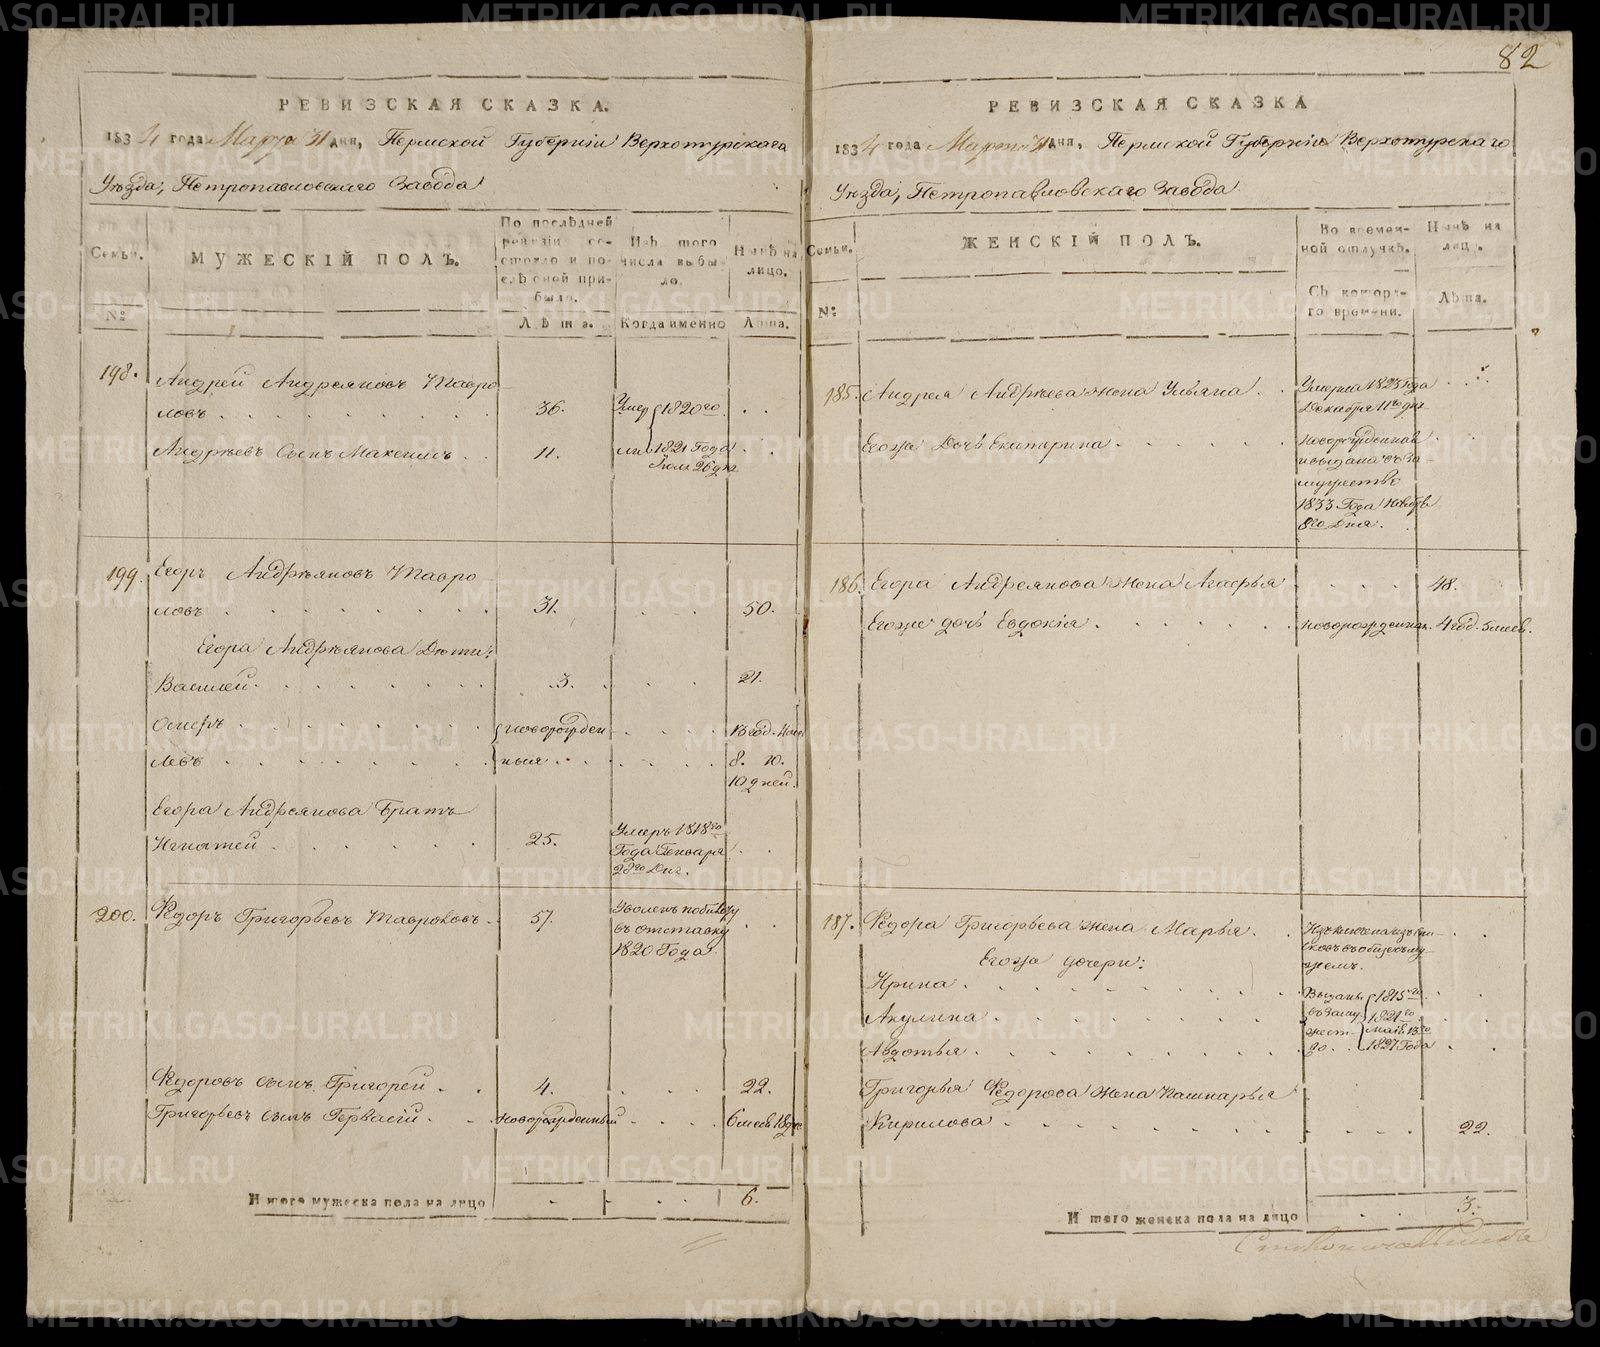 82
РЕВИЗСКАЯ СКАЗКА.
1834 года Марта 31 дня, Пермской Губернiи Верхотурскаго
Уѣзда, Петропавловскаго Завода
Семьи.
№
МУЖЕСКIЙ ПОЛЪ.
По послѣдней
ревизiи со-
стояло и по-
слѣ оной при-
было.
Лѣта.
Изъ того
числа выбы-
ло.
Когда именно
Нынѣ на
лицо.
Лѣта.
198. Андрей Андреяновъ Тавро
ловъ 36. Умер 1820го
Андрѣевъ Сынъ Максимъ 11. 1821 Года
Iюля 26 дня
199. Егоръ Андрѣяновъ Тавро
ловъ 31. 50.
Егора Андрѣянова Дѣти:
Василей 3. 21.
Осипъ новорожден 13 год. 4 мес.
Левъ ныя 8. 10.
10 дней.
Егора Андреянова Братъ
Игнатей 25. Умеръ 1818го
Года Генваря
28го Дня.
200. Федоръ Григорьевъ Тавроловъ 57. Уволенъ
въ отставку
1820 Года
Федоровъ сынъ Григорей 4. 22.
Григорьевъ сынъ Гервасiй новорожденный 6 месяц 18 дне
Итого мужеска пола на лицо 6.
РЕВИЗСКАЯ СКАЗКА
1834 года Марта 31 дня, Пермской Губернiи Верхотурскаго
Уѣзда, Петропавловскаго Завода
Семьи.
№
ЖЕНСКIЙ ПОЛЪ.
Во времен-
ной отлучкѣ.
Съ которо-
го времени.
Нынѣ на
лицо.
Лѣта.
185. Андрея Андрѣева жена Ульяна Умерла 1823 года
Декабря 11го дня
Егожа Дочь Екатерина новорожденная
и выдана въ За-
мужество
1833 Года Ноября
8го Дня.
186. Егора Андреянова жена Агафья 48.
Егоже дочь Евдокiя новорожденная. 4 год. 5 месяц.
187. Федора Григорьева жена Марья
Егожа дочери:
Ирина Выданы 1815го
Акулина въ заму 1821го
жест Маiя 13го
Авдотья во 1827 Года
Григорья Федорова жена
Кирилова 22.
Итого женска пола на лицо 3.
METRIKI.GASO-URAL.RU